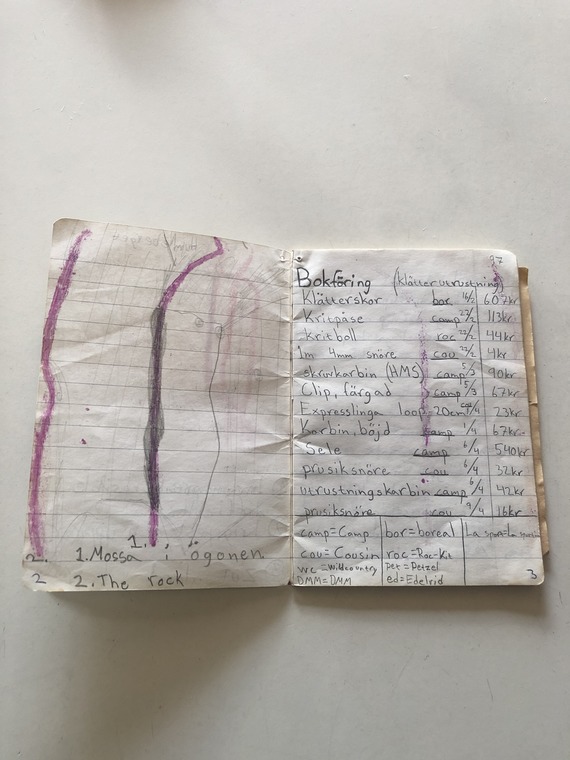 1.
2.
1. Mossa i ögonen
2. The rock
2
37
Bokföring (klätterutrustning)
Klätterskor bor 16/2 607kr
Kritpåse camp 22/2 113kr
Kritboll roc 22/2 44kr
1m 4mm snöre cou 22/2 4kr
skruvkarbin (HMS) camp 5/3 90kr
Clip, färgad camp 15/3 67kr
Expresslinga loop 20cm cou 1/4 23kr
Karbin, böjd camp 1/4 67kr
Sele camp 6/4 540kr
prusiksnöre cou 6/4 32kr
utrustningskarbin camp 6/4 42kr
prusiksnöre cou 9/4 16kr
camp=Camp bor=boreal La spor=La sportiva
cou=Cousin roc=Roc-Kit
wc=wildcountry pet=Petzel
DMM=DMM ed=Edelrid
3